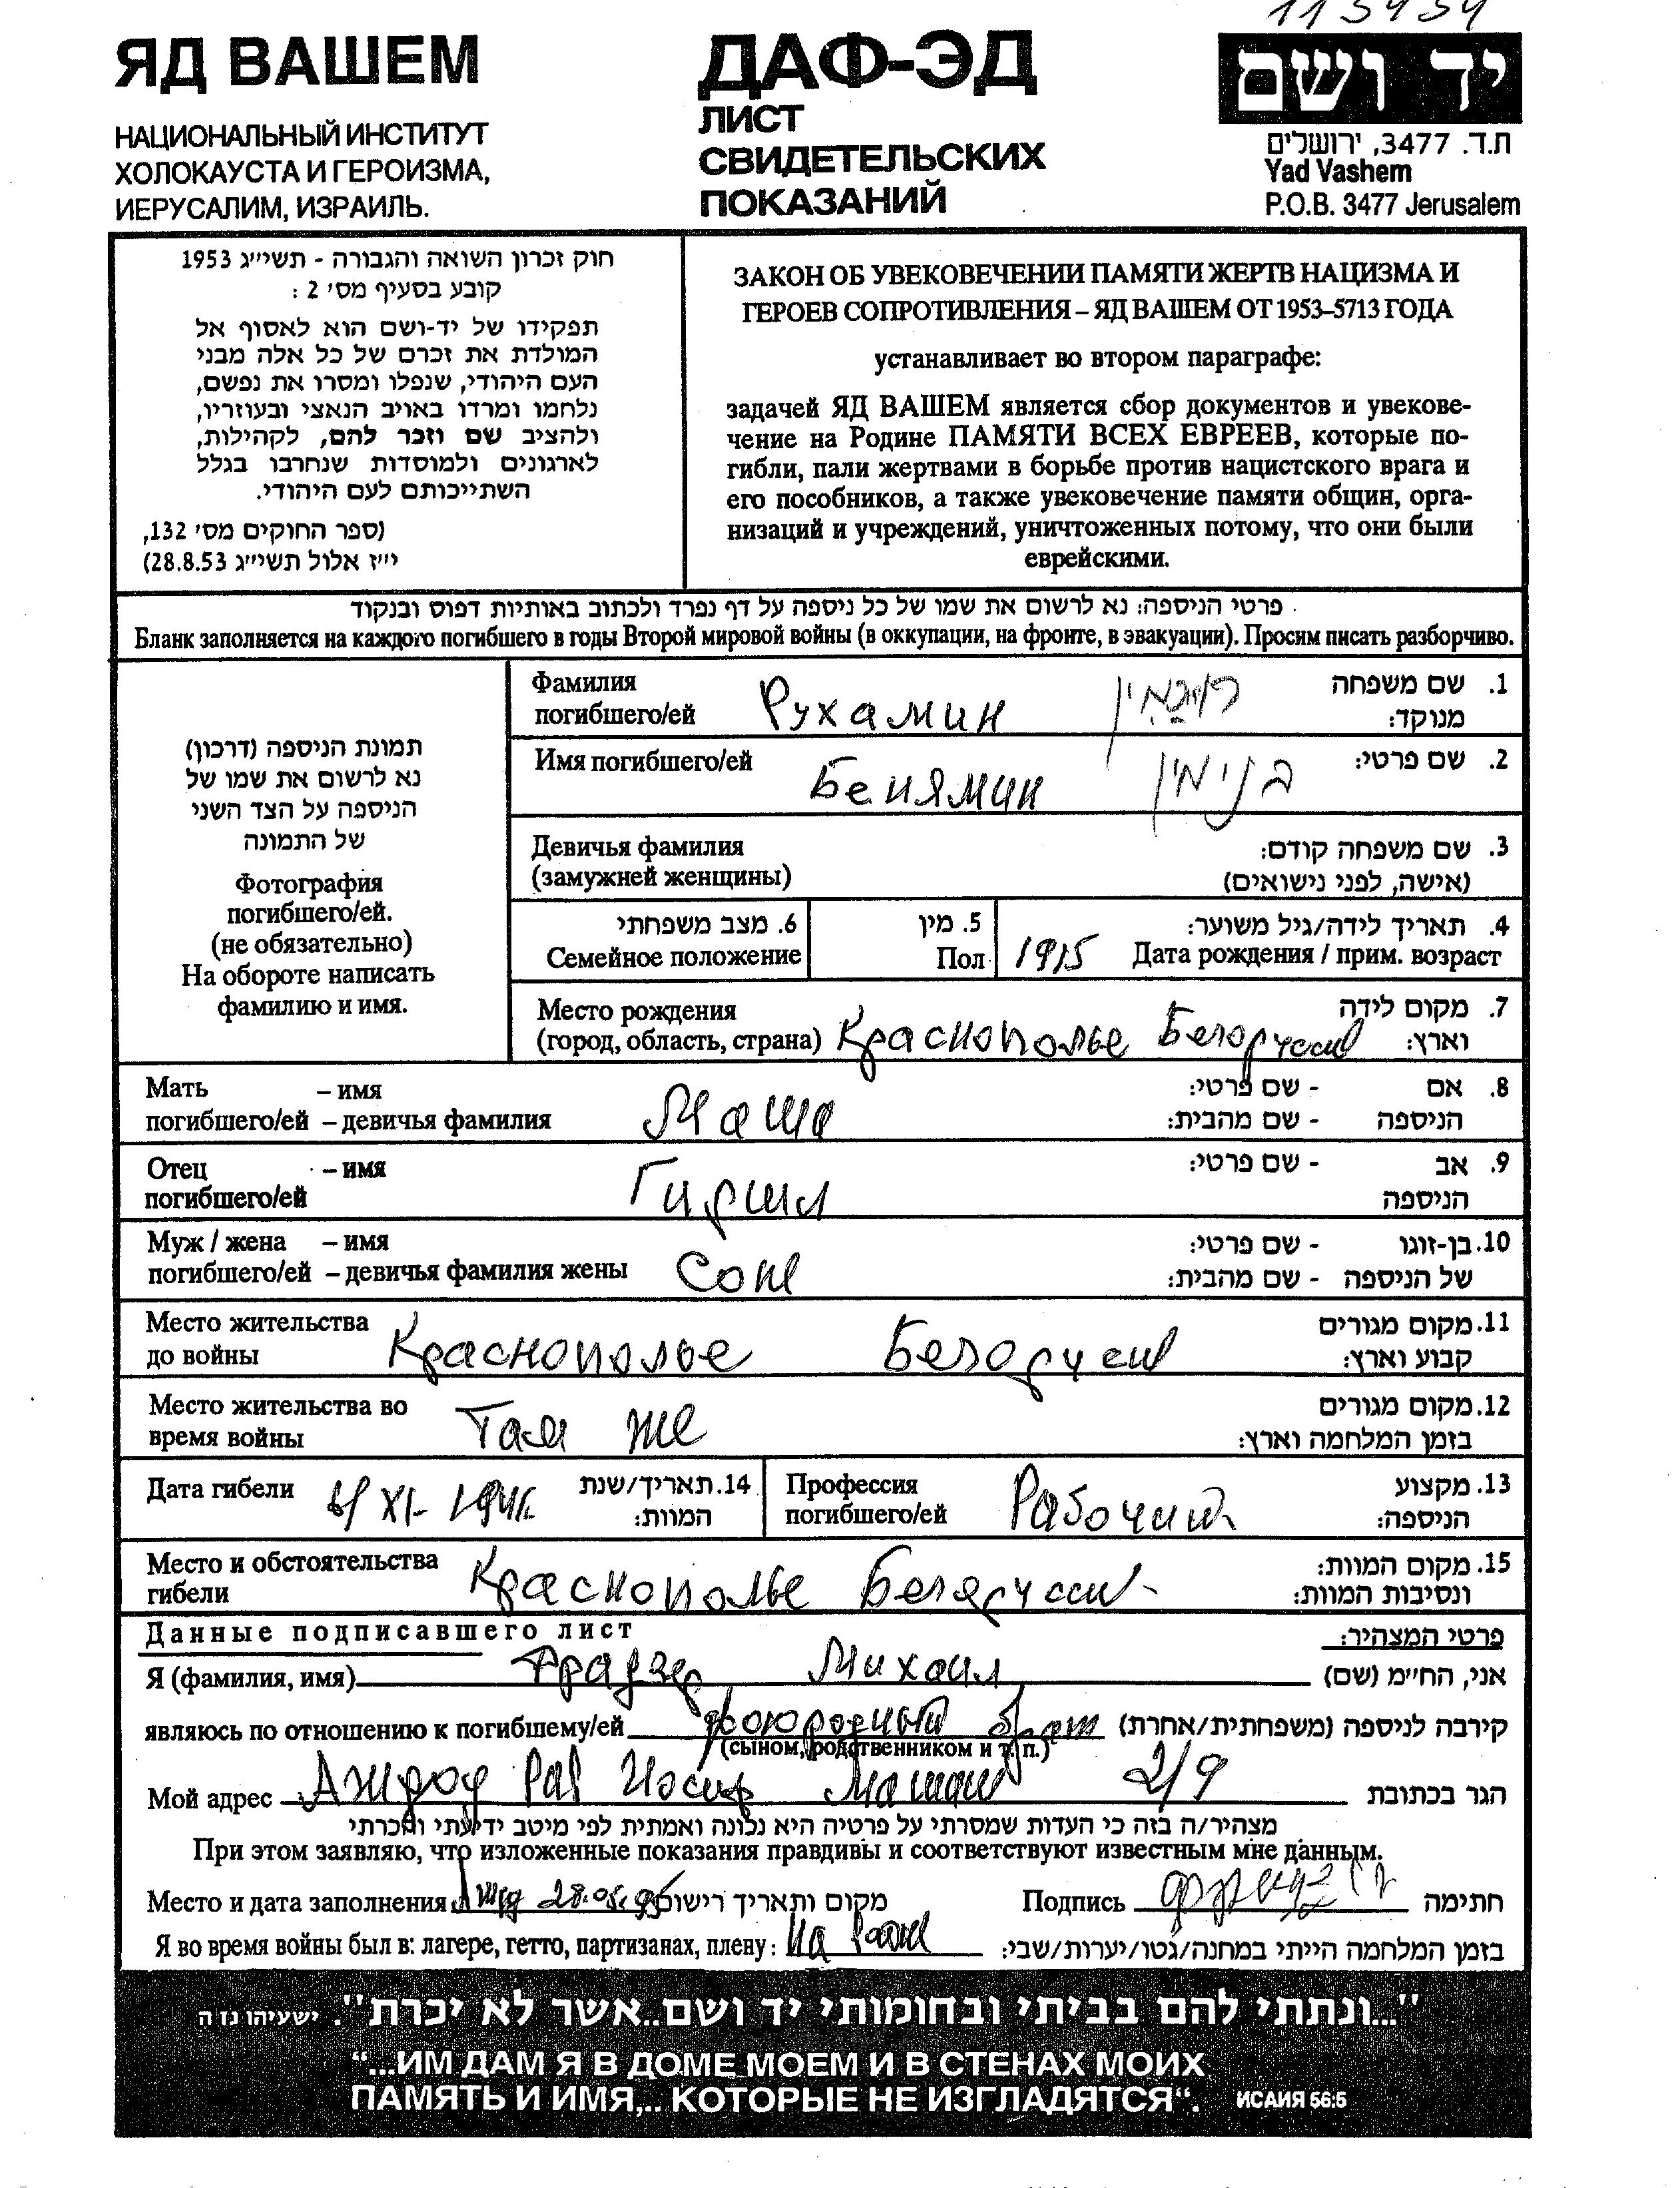 115454
ЯД ВАШЕМ
НАЦИОНАЛЬНЫЙ ИНСТИТУТ
ХОЛОКАУСТА И ГЕРОИЗМА,
ИЕРУСАЛИМ, ИЗРАИЛЬ.
ДАФ-ЭД
ЛИСТ
СВИДЕТЕЛЬСКИХ
ПОКАЗАНИЙ
יד ושם
ת.ד. 3477, ירושלים
Yad Vashem
P.O.B. 3477 Jerusalem
חוק זכרון השואה והגבורה - תשי״ג 1953
קובע בסעיף מס׳ 2 :
תפקידו של יד-ושם הוא לאסוף אל
המולדת את זכרם של כל אלה מבני
העם היהודי, שנפלו ומסרו את נפשם,
נלחמו ומרדו באויב הנאצי ובעוזריו,
ולהציב שם וזכר להם, לקהילות,
לארגונים ולמוסדות שנחרבו בגלל
השתייכותם לעם היהודי.
(ספר החוקים מס׳ 132,
י״ז אלול תשי״ג 28.8.53)
ЗАКОН ОБ УВЕКОВЕЧЕНИИ ПАМЯТИ ЖЕРТВ НАЦИЗМА И
ГЕРОЕВ СОПРОТИВЛЕНИЯ – ЯД ВАШЕМ ОТ 1953–5713 ГОДА
устанавливает во втором параграфе:
задачей ЯД ВАШЕМ является сбор документов и увекове-
чение на Родине ПАМЯТИ ВСЕХ ЕВРЕЕВ, которые по-
гибли, пали жертвами в борьбе против нацистского врага и
его пособников, а также увековечение памяти общин, орга-
низаций и учреждений, уничтоженных потому, что они были
еврейскими.
פרטי הניספה: נא לרשום את שמו של כל ניספה על דף נפרד ולכתוב באותיות דפוס ובנקוד
Бланк заполняется на каждого погибшего в годы Второй мировой войны (в оккупации, на фронте, в эвакуации). Просим писать разборчиво.
תמונת הניספה (דרכון)
נא לרשום את שמו של
הניספה על הצד השני
של התמונה
Фотография
погибшего/ей.
(не обязательно)
На обороте написать
фамилию и имя.
Фамилия 1. שם משפחה
погибшего/ей Рухамин רוחמין מנוקד:
Имя погибшего/ей Бениямин בנימין 2. שם פרטי:
Девичья фамилия 3. שם משפחה קודם:
(замужней женщины) (אישה, לפני נישואים)
6. מצב משפחתי 5. מין 4. תאריך לידה/גיל משוער:
Семейное положение Пол 1915 Дата рождения / прим. возраст
Место рождения 7. מקום לידה
(город, область, страна) Краснополье Белоруссия וארץ:
Мать – имя 8. אם - שם פרטי:
погибшего/ей – девичья фамилия Маша הניספה - שם מהבית:
Отец – имя 9. אב - שם פרטי:
погибшего/ей Гиршл הניספה
Муж / жена – имя 10. בן-זוגו - שם פרטי:
погибшего/ей – девичья фамилия жены Соня של הניספה - שם מהבית:
Место жительства 11. מקום מגורים
до войны Краснополье Белоруссия קבוע וארץ:
Место жительства во 12. מקום מגורים
время войны Там же בזמן המלחמה וארץ:
Дата гибели XI- 1941 14. תאריך/שנת המוות:
Профессия 13. מקצוע
погибшего/ей Рабочий הניספה:
Место и обстоятельства 15. מקום המוות:
гибели Краснополье Белоруссия ונסיבות המוות:
Данные подписавшего лист פרטי המצהיר:
Я (фамилия, имя) Михаил אני, הח״מ (שם)
являюсь по отношению к погибшему/ей двоюродный брат קירבה לניספה (משפחתית/אחרת)
(сыном, родственником и т. п.)
Мой адрес Ашдод Рав Иосиф 2/9 הגר בכתובת
מצהיר/ה בזה כי העדות שמסרתי על פרטיה היא נכונה ואמתית לפי מיטב ידיעתי והכרתי
При этом заявляю, что изложенные показания правдивы и соответствуют известным мне данным.
Место и дата заполнения 28.05.95 מקום ותאריך רישום Подпись חתימה
Я во время войны был в: лагере, гетто, партизанах, плену: בזמן המלחמה הייתי במחנה/גטו/יערות/שבי:
"...ונתתי להם בביתי ובחומותי יד ושם..אשר לא יכרת". ישעיהו נו ה
“...ИМ ДАМ Я В ДОМЕ МОЕМ И В СТЕНАХ МОИХ
ПАМЯТЬ И ИМЯ,.. КОТОРЫЕ НЕ ИЗГЛАДЯТСЯ“. ИСАИЯ 56:5